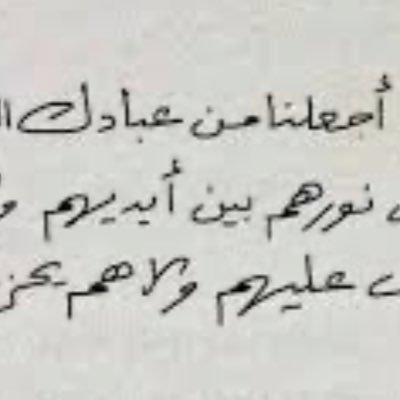 أجعلنا من عبادك
نورهم بين أيديهم
عليهم ولا هم